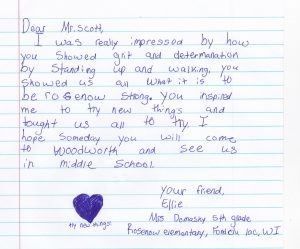 Dear Mr. Scott,
I was really impressed by how
you showed grit and determanation
by standing up and walking, you
showed us all what it is to
be rosenow strong. You inspired
me to try new things and
tought us all to try I
hope someday you will come
to Woodworth and see us
in middle school.
Your friend,
Ellie
Mrs Domasky 5th grade
Rosenow elementary, Fond du lac, WI
try new things.